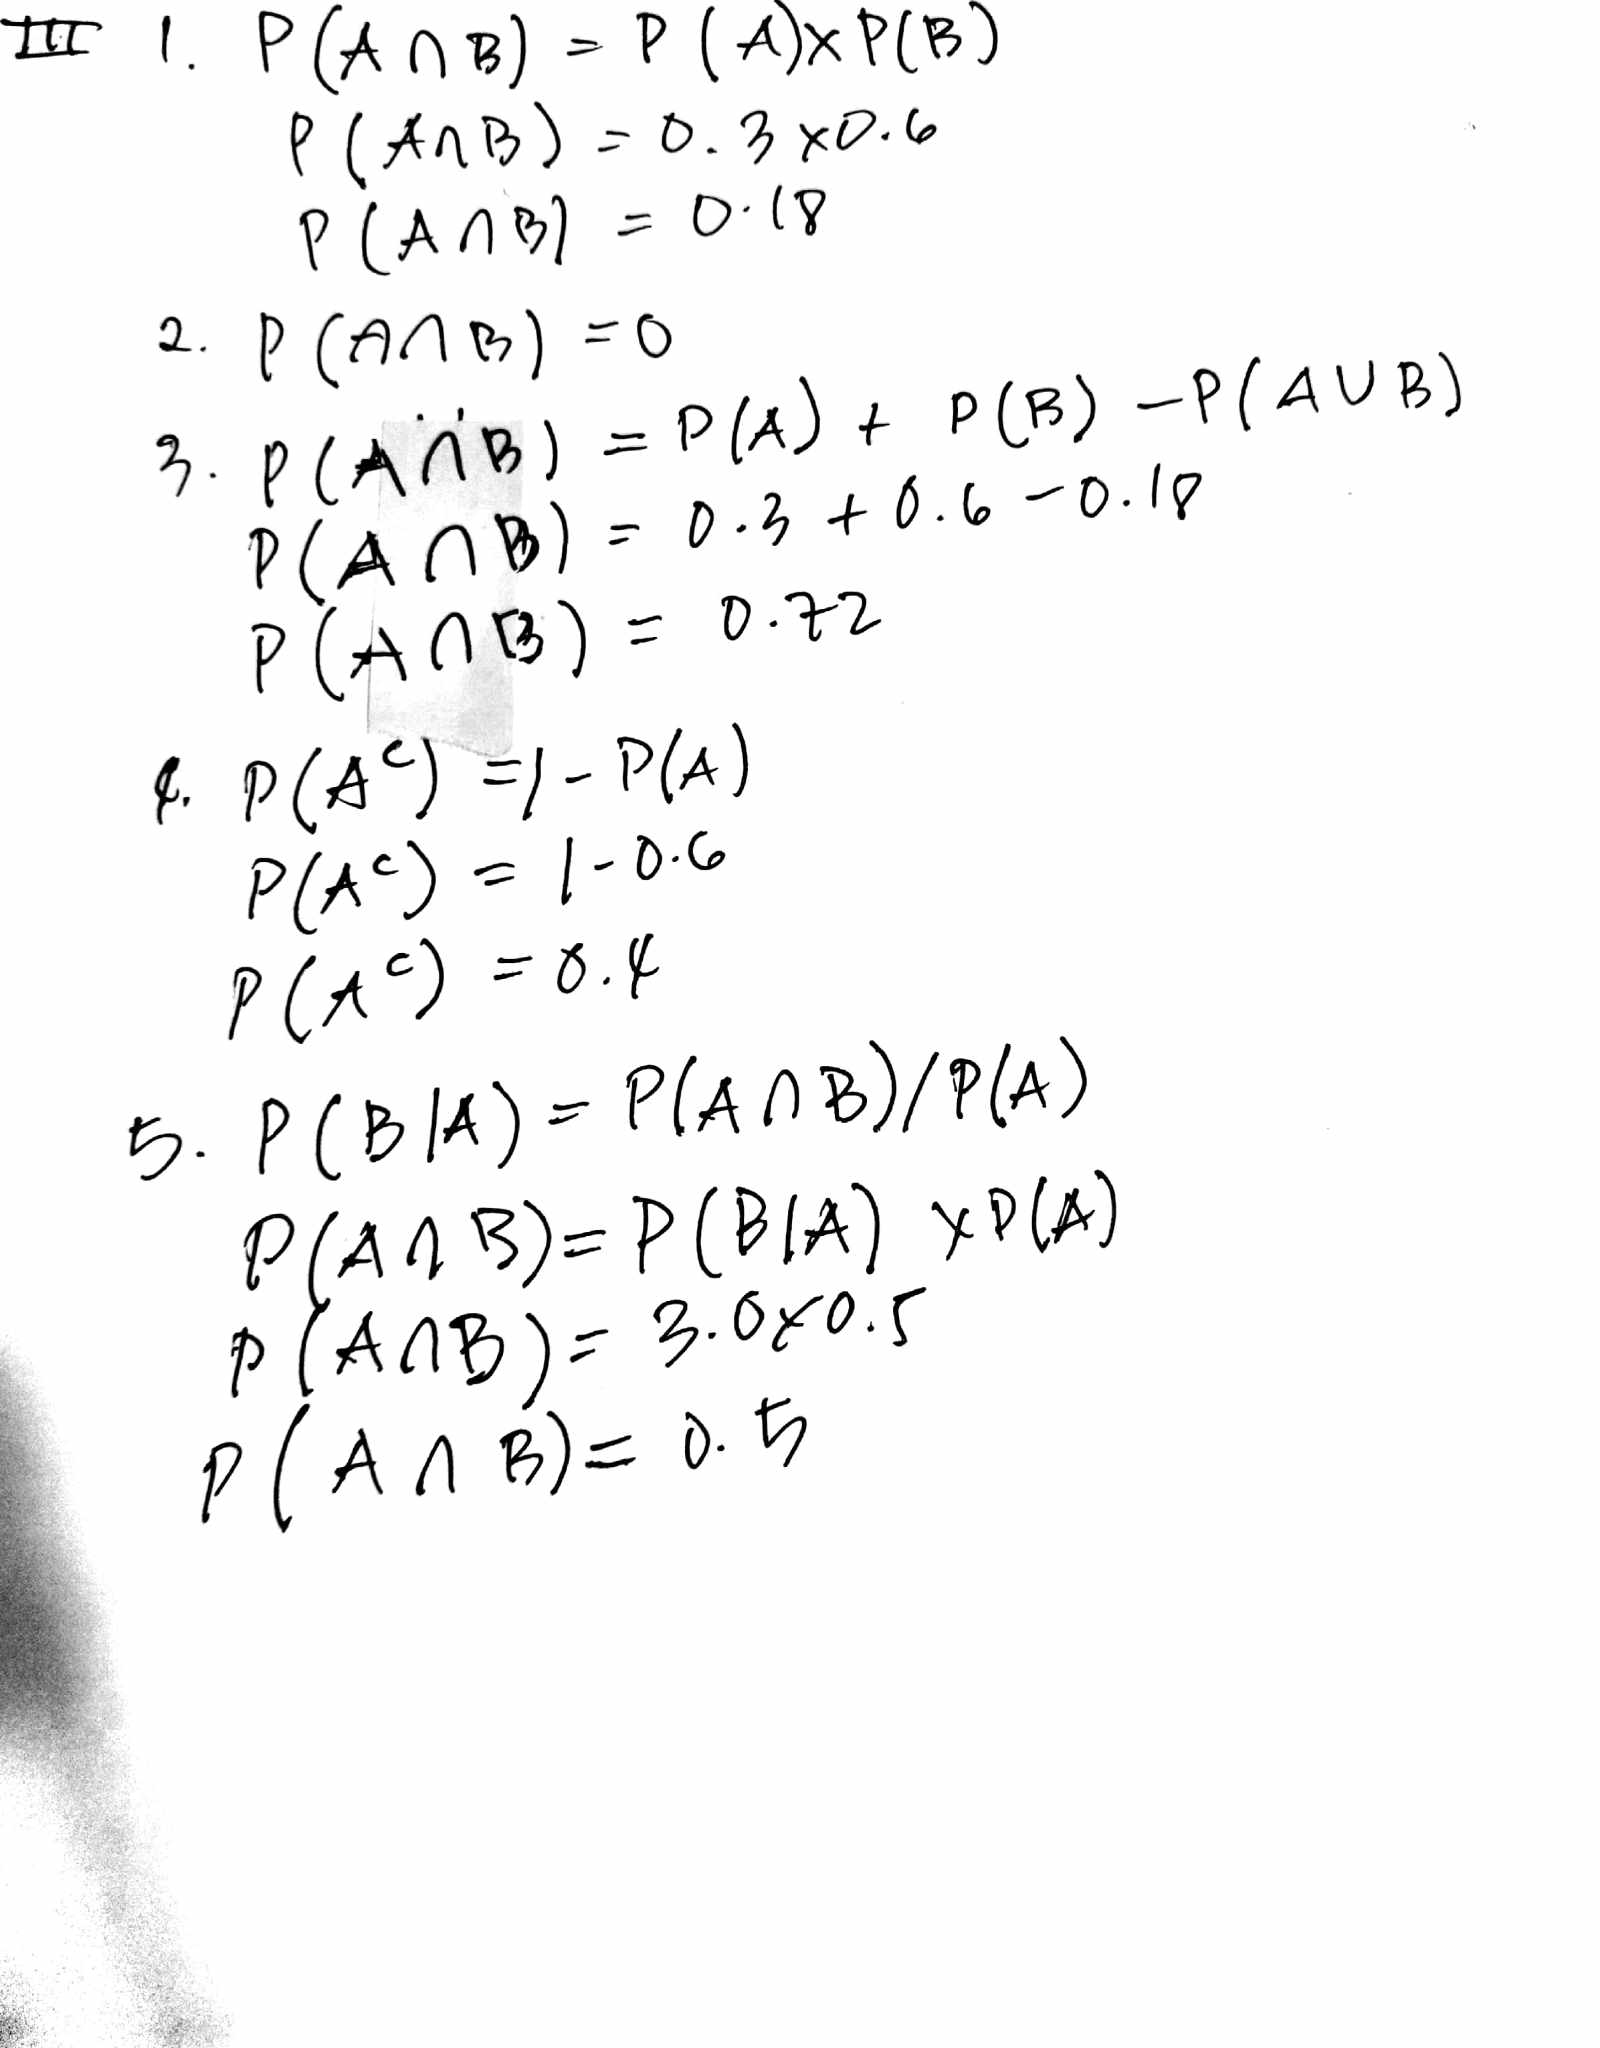 III 1. P(A∩B) = P(A)×P(B)
P(A∩B) = 0.3×0.6
P(A∩B) = 0.18
2. P(A∩B) = 0
3. P(A∩B) = P(A) + P(B) - P(A∪B)
P(A∩B) = 0.3 + 0.6 - 0.18
P(A∩B) = 0.72
4. P(Aᶜ) = 1 - P(A)
P(Aᶜ) = 1 - 0.6
P(Aᶜ) = 0.4
5. P(B|A) = P(A∩B)/P(A)
P(A∩B) = P(B|A) × P(A)
P(A∩B) = 3.0×0.5
P(A∩B) = 0.5